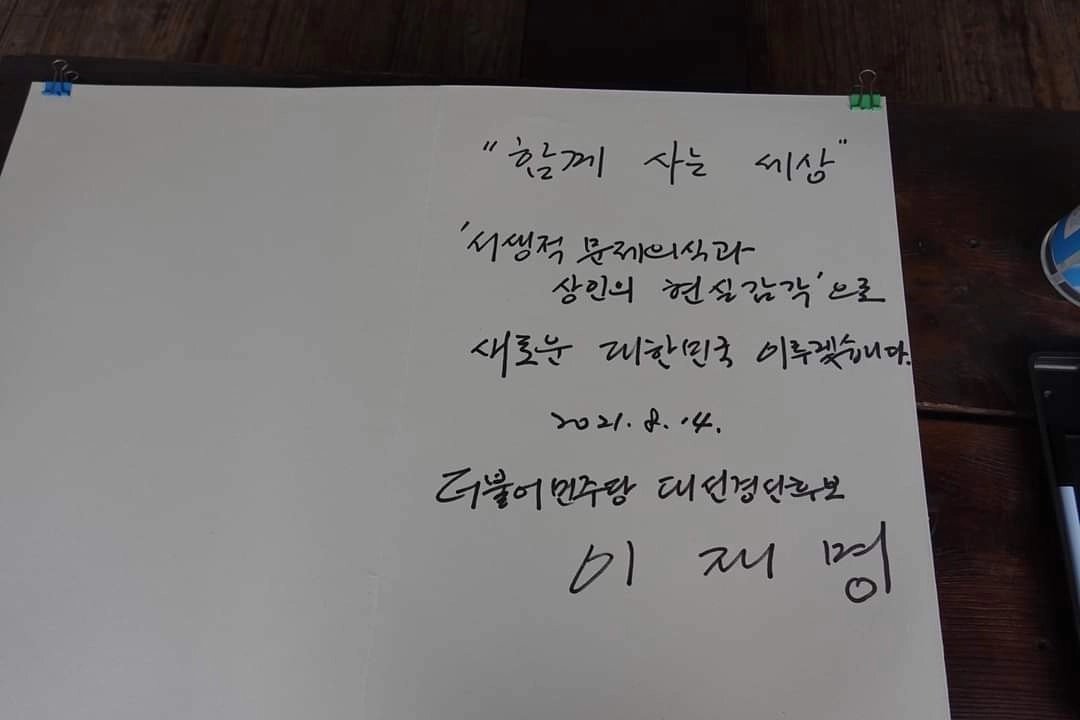 "함께 사는 세상"
'서생적 문제의식과
상인의 현실감각'으로
새로운 대한민국 이루겠습니다.
2021. 8. 14.
더불어민주당 대선경선후보
이재명